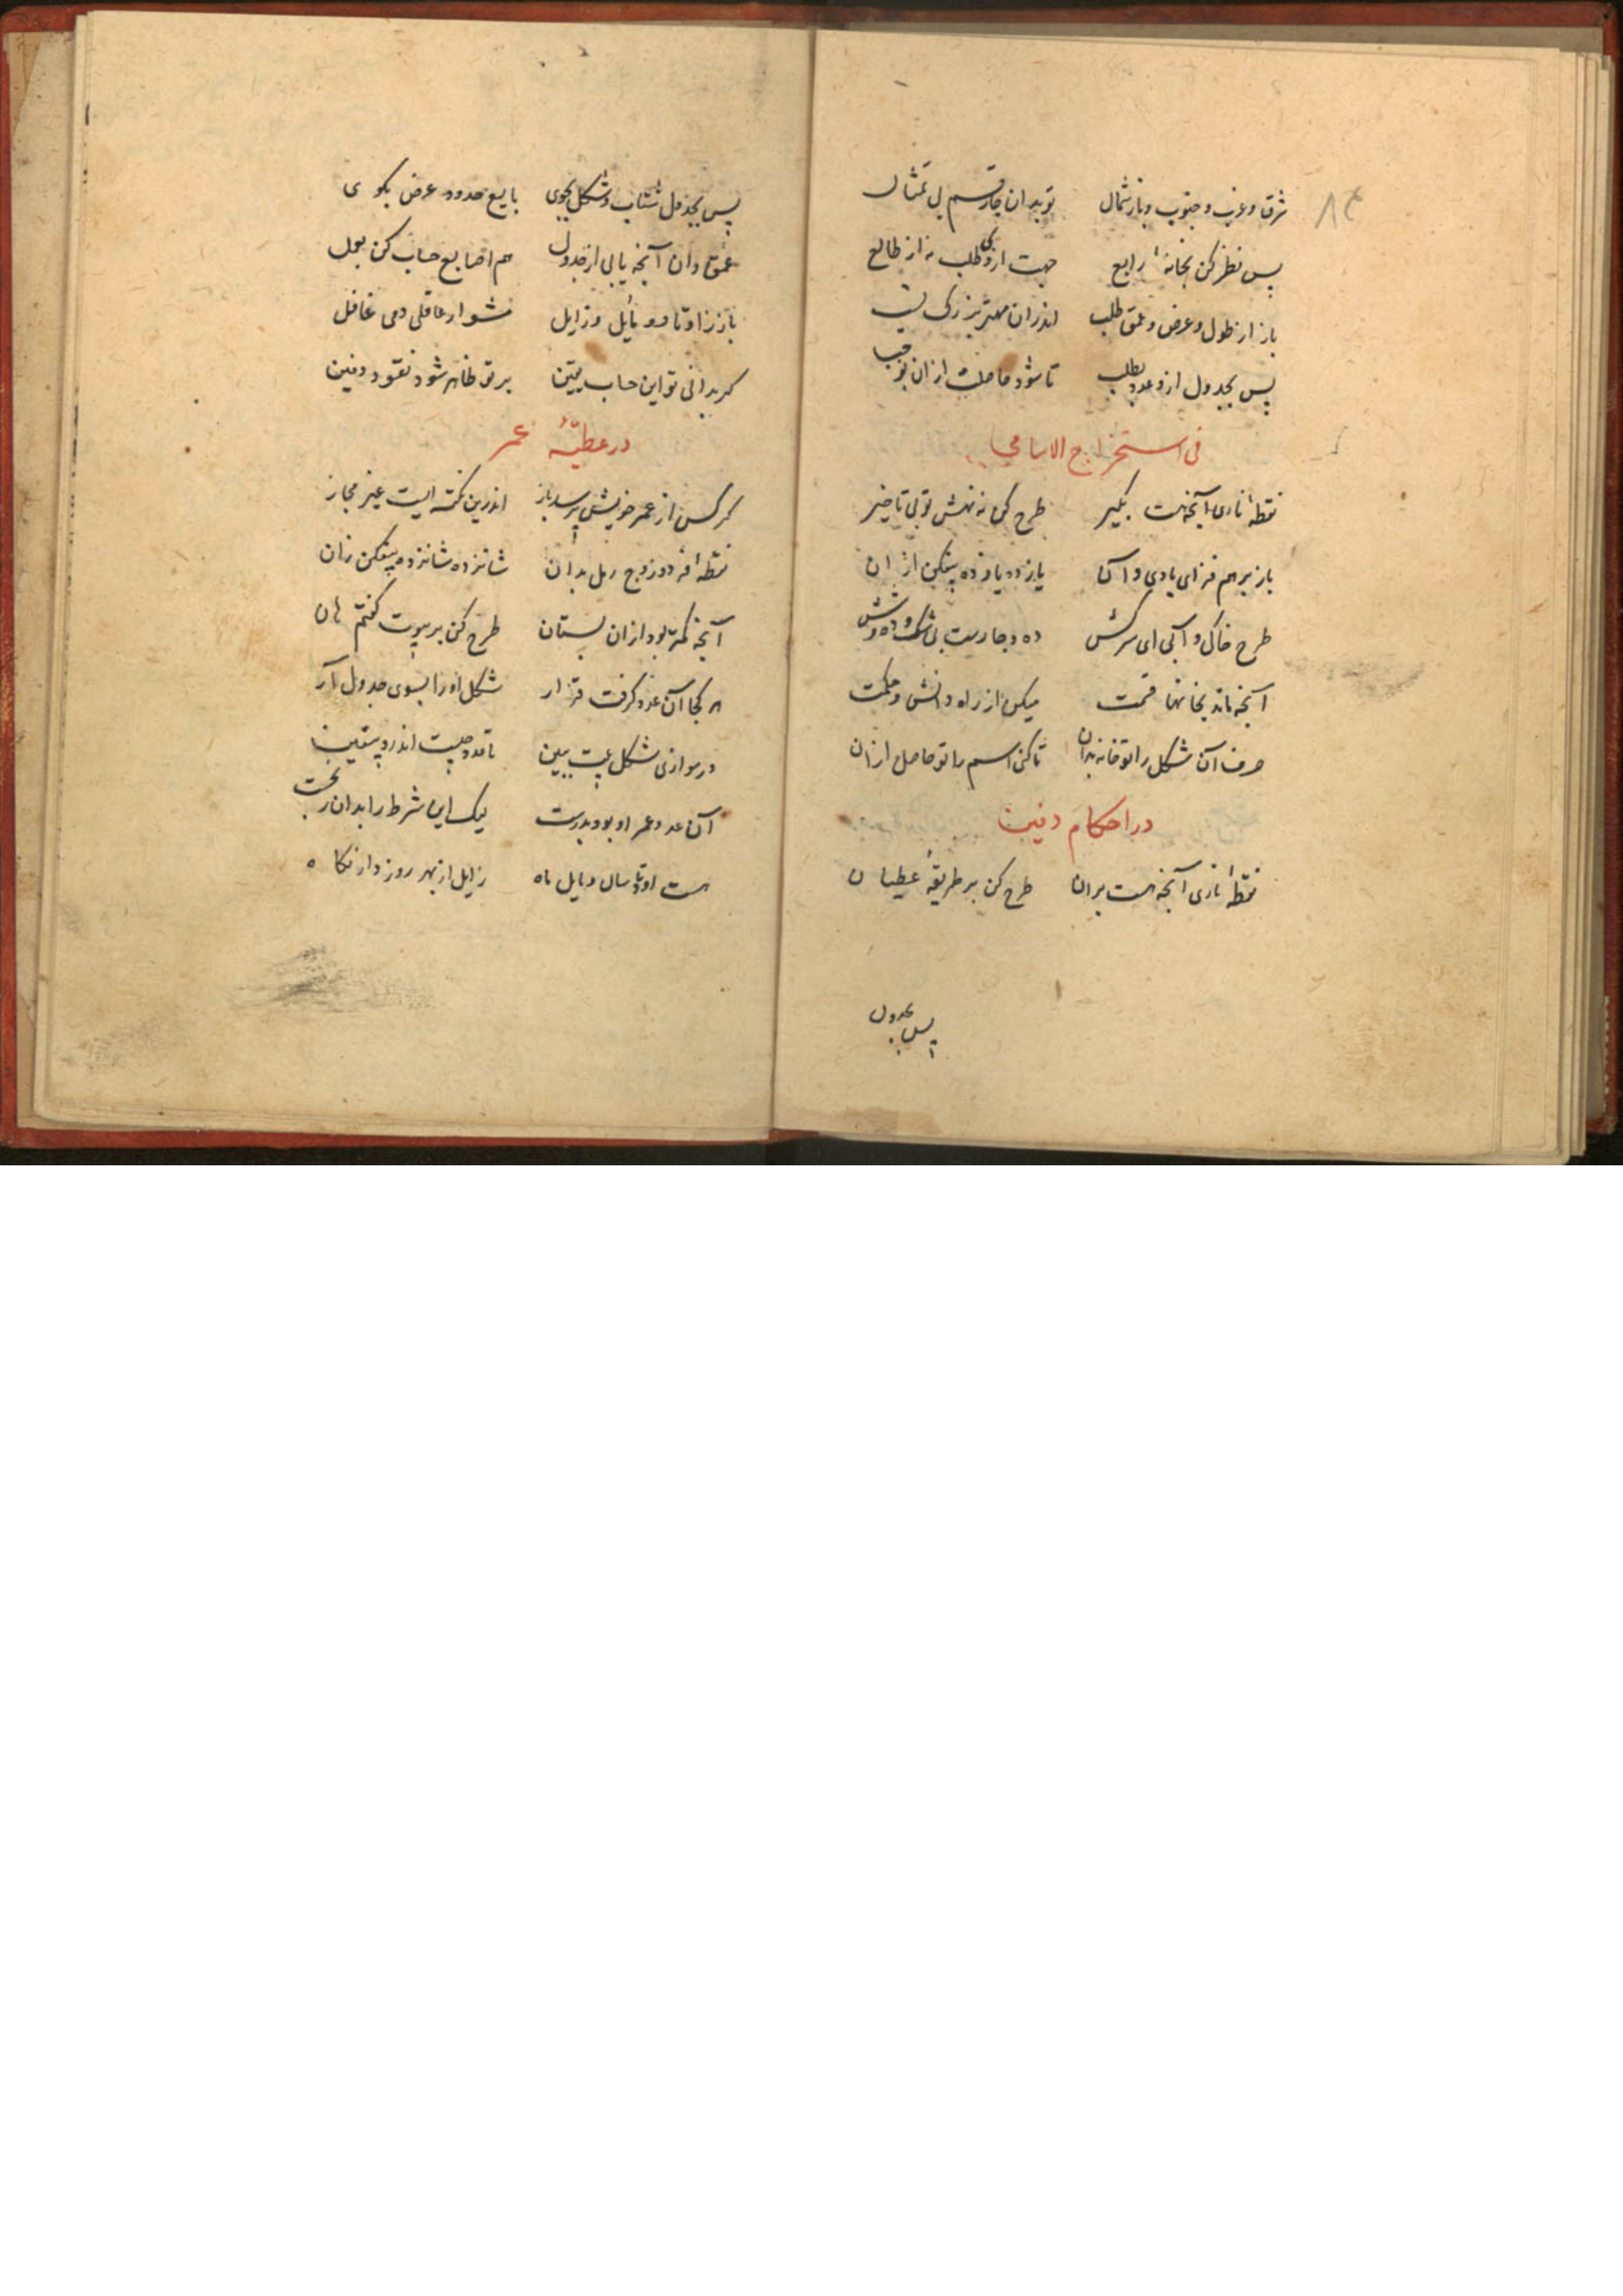 ۸۴
شرق و غرب و جنوب و باز شمال تو بدان چار قسم بی تمثال
پس نظر کن بخانهٔ رابع جهت از وی طلب نه از طالع
باز از طول و عرض و عمق طلب اندران مهتر بزرگی
پس بجدول ازو عدد بطلب تا شود حاصلت ازان
فی استخراج الاسامی
نقطهٔ ناری آنچه هست بگیر طرح کن نه نهش تو بی تاخیر
باز بر هم فزای بادی و آن یازده یازده بیفکن از ان
طرح خاکی و آبی ای سرکش ده و چارست بی شک و ده و شش
آنچه ماند بخانها قسمت میکن از راه دانش و حکمت
حرف آن شکل را تو خانه بدان تا کن اسم را تو حاصل ازان
در احکام دفین
نقطهٔ ناری آنچه هست بران طرح کن بر طریقهٔ عطیان
پس بجدول
پس بجدول شتاب و شکل بجوی بایع حدود عرض بگوی
عمق دان آنچه یابی از جدول هم اصابع حساب کن بعمل
باز ز اوتاد و مایل و زایل مشو ار عاقلی دمی غافل
گر بدانی تو این حساب یقین بر تو ظاهر شود نقود دفین
در عطیّهٔ عمر
گر کسی از عمر خویش پرسد باز اندرین نکته ایست غیر مجاز
نقطهٔ فرد و زوج رمل بدان شانزده شانزده بیفکن زان
آنچه کمتر بود ازان بستان طرح کن بر بیوت گفتم هان
هر کجا آن عدد گرفت قرار شکل او را بسوی جدول آر
در موازی شکل ببین تا عدد چیست اندرو بیقین
آن عدد عمر او بود بدرست لیک این شرط را بدان ز نخست
هست اوتاد سال و مایل ماه زایل از بهر روز دار نگاه